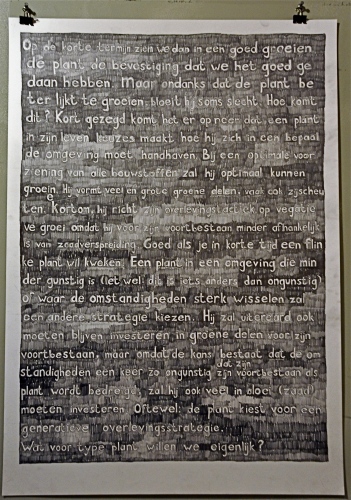 Op de korte termijn zien we dan in een goed groeien
de plant de bevestiging dat we het goed ge
daan hebben. Maar ondanks dat de plant be
ter lijkt te groeien bloeit hij soms slecht. Hoe komt
dit? Kort gezegd komt het er op neer dat een plant
in zijn leven keuzes maakt hoe hij zich in een bepaal
de omgeving moet handhaven. Bij een optimale voor
ziening van alle bouwstoffen zal hij optimaal kunnen
groeien. Hij vormt veel en grote groene delen, vaak ook zijscheu
ten. Kortom, hij richt zijn overlevingstactiek op vegatie
ve groei omdat hij voor zijn voortbestaan minder afhankelijk
is van zaadverspreiding. Goed als je in korte tijd een flin
ke plant wil kweken. Een plant in een omgeving die min
der gunstig is (let wel dit is iets anders dan ongunstig)
of waar de omstandigheden sterk wisselen zal
een andere strategie kiezen. Hij zal uiteraard ook
moeten blijven investeren in groene delen voor zijn
voortbestaan, maar omdat de kans bestaat dat de om
standigheden een keer zo ongunstig zijn dat zijn voortbestaan als
plant wordt bedreigd, zal hij ook veel in bloei (zaad)
moeten investeren. Oftewel: de plant kiest voor een
generatieve overlevingsstrategie.
Wat voor type plant willen we eigenlijk?